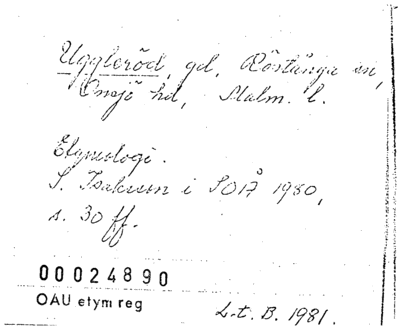 Uggleröd, gd, Röstånga sn,
Onsjö hd, Malm. l.
Etymologi.
S. Isakson i SOÅ 1980,
s. 30 ff.
00024890
OAU etym reg
L.t.B. 1981.